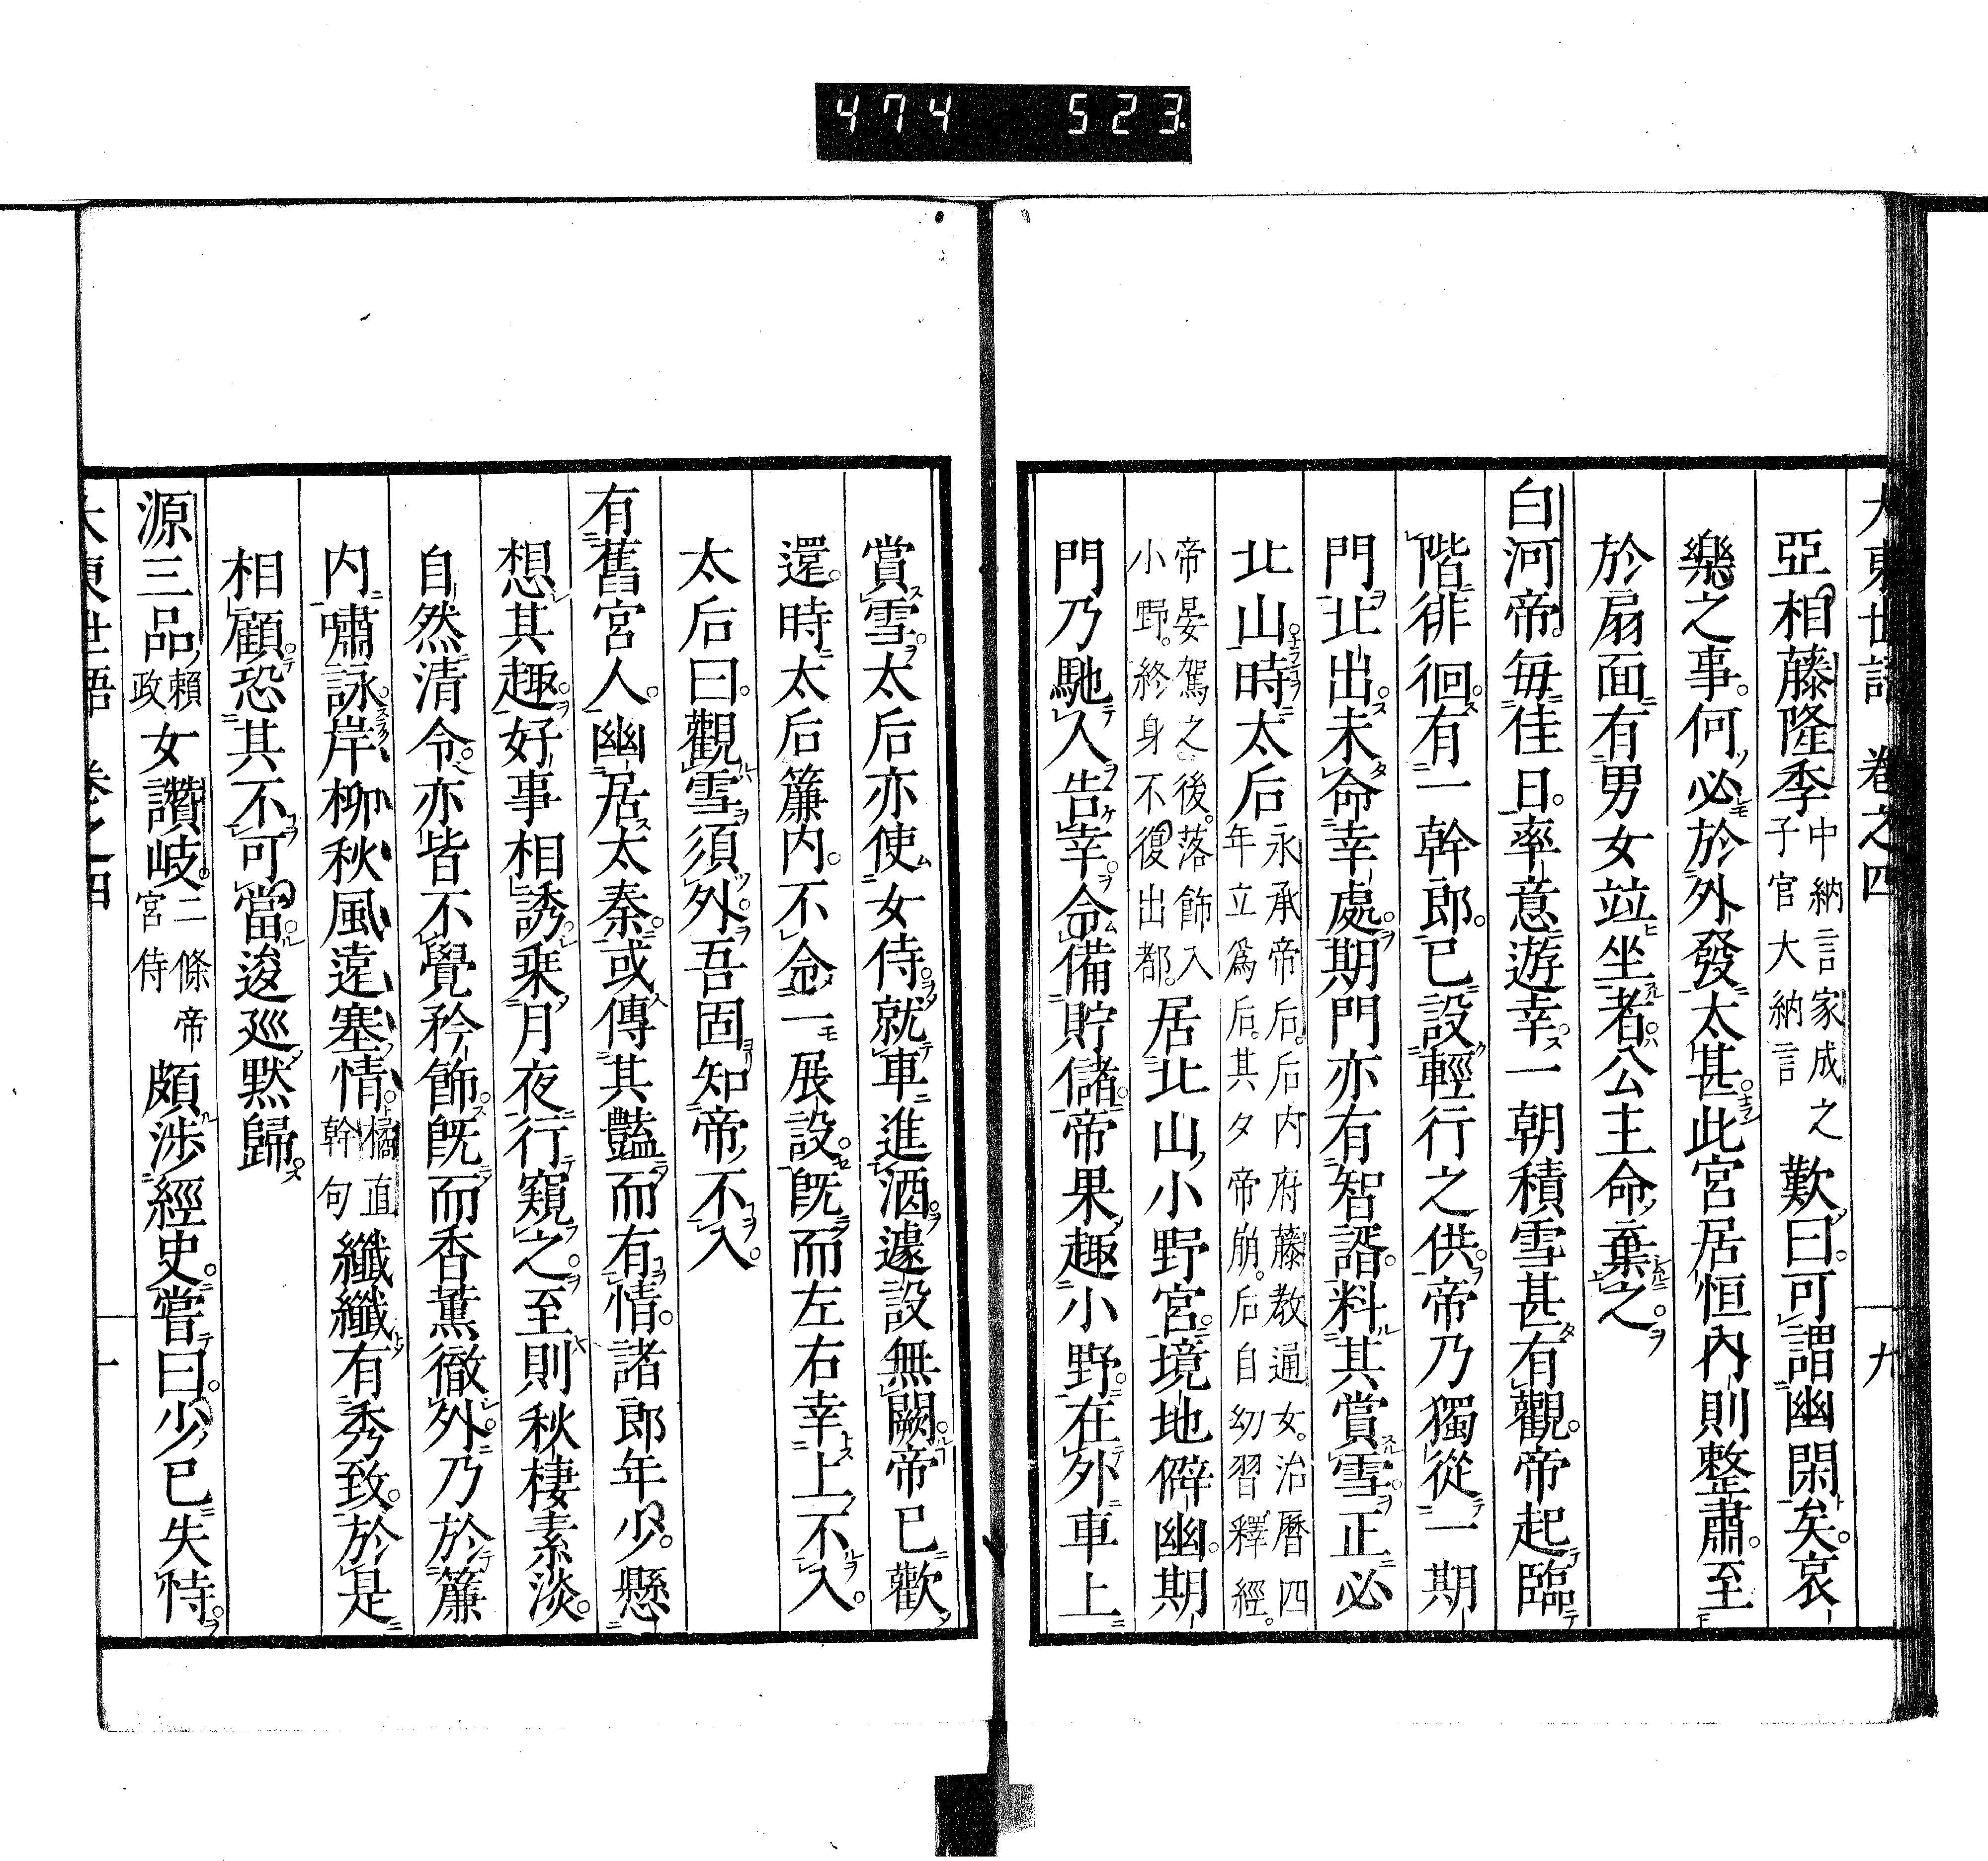 474 523
大東世語 卷之四 九
亞相藤隆季中納言家成之子官大納言歎曰可謂幽閑矣哀
樂之事何必於外發太甚此宮居恒内則整肅至
於扇面有男女竝坐者公主命棄之
白河帝毎佳日率意遊幸一朝積雪甚有觀帝起臨
階徘徊有一幹郎已設輕行之供帝乃獨從一期
門北出未命幸處期門亦有智謂料其賞雪正必
北山時太后永承帝后后内府藤教通女治曆四年立爲后其夕帝崩后自幼習釋經
帝晏駕之後落飾入小野終身不復出都居北山小野宮境地僻幽期
門乃馳入告幸令備貯儲帝果趣小野在外車上
賞雪太后亦使女侍就車進酒遽設無闕帝已歡
還時太后簾内不令一展設既而左右幸上不入
太后曰觀雪須外吾固知帝不入
有舊宮人幽居太秦或傳其豔而有情諸郎年少懸
想其趣好事相誘乘月夜行窺之至則秋棲素淡
自然清令亦皆不覺矜飾既而香薫徹外乃於簾
内嘯詠岸柳秋風遠塞情橘直幹句纖纖有秀致於是
相顧恐其不可當逡巡黙歸
源三品頼政女讚岐二條帝宮侍頗渉經史嘗曰少已失恃
大東世語 卷之四 十